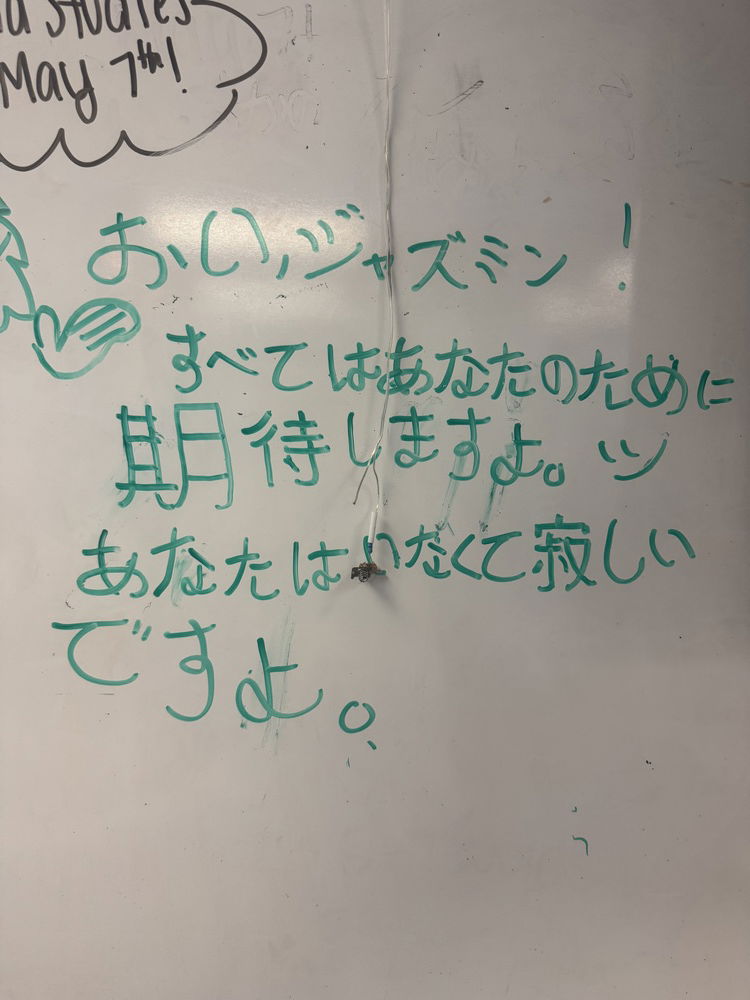 Studies
May 7th!
おい、ジャズミン!
すべてはあなたのために
期待しますよ。ツ
あなたはいなくて寂しい
ですよ。